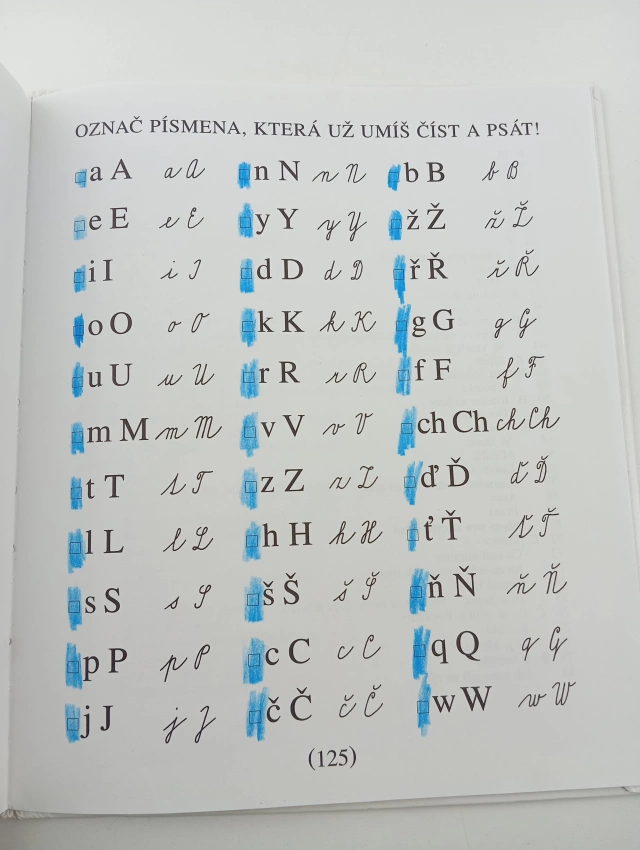 OZNAČ PÍSMENA, KTERÁ UŽ UMÍŠ ČÍST A PSÁT!
a A a A n N n N b B b B
e E e E y Y y Y ž Ž ž Ž
i I i I d D d D ř Ř ř Ř
o O o O k K k K g G g G
u U u U r R r R f F f F
m M m M v V v V ch Ch ch Ch
t T t T z Z z Z ď Ď ď Ď
l L l L h H h H ť Ť ť Ť
s S s S š Š š Š ň Ň ň Ň
p P p P c C c C q Q q Q
j J j J č Č č Č w W w W
(125)